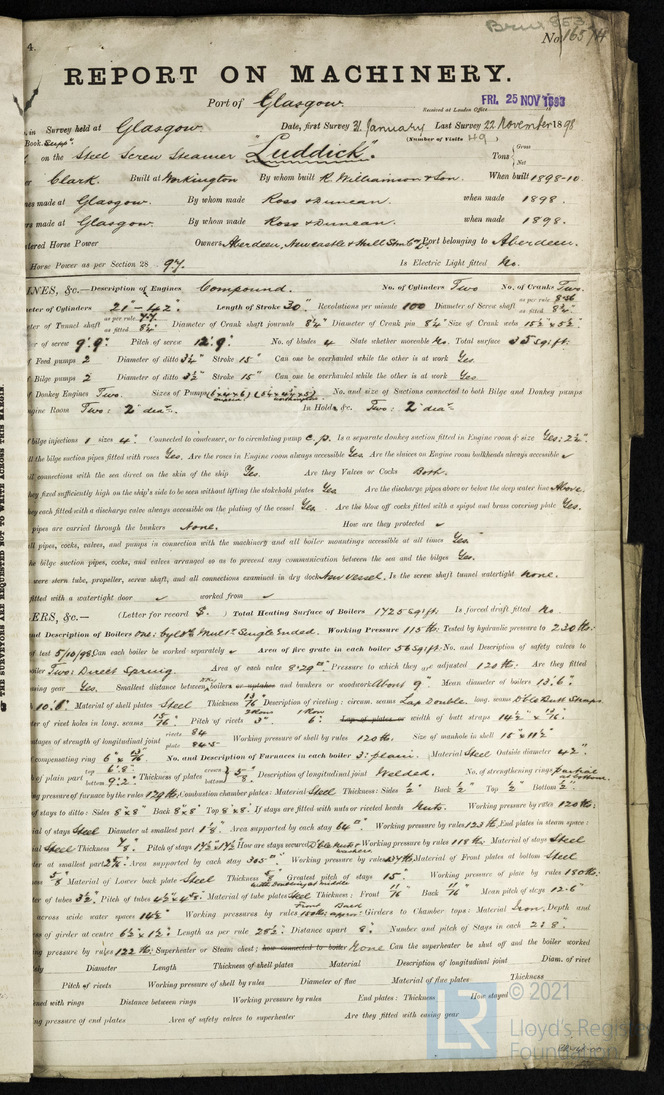 4.
No. 16574
REPORT ON MACHINERY.
Port of Glasgow.
Received at London Office
FRI. 25 NOV 1898
in Survey held at Glasgow. Date, first Survey 31 January Last Survey 22 November 1898
Book. (Number of Visits 49)
on the Steel Screw Steamer "Luddick". Tons Gross Net
Clark. Built at Workington By whom built R. Williamson & Son. When built 1898-10
made at Glasgow. By whom made Ross & Duncan. when made 1898.
made at Glasgow. By whom made Ross & Duncan. when made 1898.
Horse Power Owners Aberdeen, Newcastle & Hull Port belonging to Aberdeen.
Horse Power as per Section 28 97. Is Electric Light fitted No.
INES, &c.—Description of Engines Compound. No. of Cylinders Two No. of Cranks Two.
of Cylinders 21" - 42" Length of Stroke 30" Revolutions per minute 100 Diameter of Screw shaft as per rule as fitted
of Tunnel shaft as per rule as fitted 8¼" Diameter of Crank shaft journals 8¼" Diameter of Crank pin 8¼" Size of Crank webs 15½" x 5½"
of screw 9'. 9" Pitch of screw 12'. 9" No. of blades 4 State whether moveable No. Total surface 35 sq: ft:
Feed pumps 2 Diameter of ditto 3½" Stroke 15" Can one be overhauled while the other is at work Yes
Bilge pumps 2 Diameter of ditto 3½" Stroke 15" Can one be overhauled while the other is at work Yes
Donkey Engines Two. Sizes of Pumps No. and size of Suctions connected to both Bilge and Donkey pumps
Room Two: 2" In Holds, &c. Two: 2"
bilge injections 1 sizes 4" Connected to condenser, or to circulating pump C. P. Is a separate donkey suction fitted in Engine room & size Yes: 2½"
the bilge suction pipes fitted with roses Yes. Are the roses in Engine room always accessible Yes. Are the sluices on Engine room bulkheads always accessible ✓
connections with the sea direct on the skin of the ship Yes. Are they Valves or Cocks Both.
they fixed sufficiently high on the ship's side to be seen without lifting the stokehold plates Yes Are the discharge pipes above or below the deep water line Above.
they each fitted with a discharge valve always accessible on the plating of the vessel Yes. Are the blow off cocks fitted with a spigot and brass covering plate Yes.
pipes are carried through the bunkers None. How are they protected ✓
pipes, cocks, valves, and pumps in connection with the machinery and all boiler mountings accessible at all times Yes
the bilge suction pipes, cocks, and valves arranged so as to prevent any communication between the sea and the bilges Yes.
were stern tube, propeller, screw shaft, and all connections examined in dry dock New Vessel. Is the screw shaft tunnel watertight None.
fitted with a watertight door ✓ worked from ✓
ERS, &c.— (Letter for record S.) Total Heating Surface of Boilers 1725 sq: ft: Is forced draft fitted No
and Description of Boilers One: Cyl. Mult. Single Ended. Working Pressure 115 lb: Tested by hydraulic pressure to 230 lb:
of test 5/10/98 Can each boiler be worked separately ✓ Area of fire grate in each boiler 56 sq: ft: No. and Description of safety valves to
boiler Two: Direct Spring. Area of each valve 8.29 Pressure to which they are adjusted 120 lb: Are they fitted
easing gear Yes. Smallest distance between boilers or uptakes and bunkers or woodwork About 9" Mean diameter of boilers 13'. 6"
10'. 6" Material of shell plates Steel Thickness 13/16" Description of riveting: circum. seams Lap Double. long. seams Dble Butt Straps
of rivet holes in long. seams 15/16" Pitch of rivets 3" 6" Lap of plates or width of butt straps 14½" x
of strength of longitudinal joint rivets 84 plate 84.5 Working pressure of shell by rules 120 lb. Size of manhole in shell 15" x 11½"
compensating ring 6" x No. and Description of Furnaces in each boiler 3: plain. Material Steel Outside diameter 42"
of plain part top 6'. 8" bottom 9'. 2" Thickness of plates crown bottom Description of longitudinal joint Welded. No. of strengthening rings partial
pressure of furnace by the rules 129 lb: Combustion chamber plates: Material Steel Thickness: Sides ½" Back ½" Top ½" Bottom ½"
of stays to ditto: Sides 8" x 8" Back 8" x 8" Top 8" x 8". If stays are fitted with nuts or riveted heads Nuts. Working pressure by rules 120 lb:
of stays Steel Diameter at smallest part 1⅜" Area supported by each stay 64 Working pressure by rules 123 lb. End plates in steam space:
Steel Thickness ⅞". Pitch of stays 17½" x 17½" How are stays secured Dble Nuts & washers Working pressure by rules 118 lb: Material of stays Steel
at smallest part Area supported by each stay 305 Working pressure by rules 134 lb. Material of Front plates at bottom Steel
⅝ Material of Lower back plate Steel Thickness Greatest pitch of stays 15". Working pressure of plate by rules
of tubes 3½". Pitch of tubes Material of tube plates Steel Thickness: Front 11/16" Back 11/16" Mean pitch of stays
across wide water spaces 14½" Working pressures by rules Girders to Chamber tops: Material Iron. Depth and
of girder at centre 6½" x 1½" Length as per rule 25½" Distance apart 8". Number and pitch of Stays in each 2: 8".
pressure by rules 122 lb: Superheater or Steam chest; how connected to boiler None Can the superheater be shut off and the boiler worked
Diameter Length Thickness of shell plates Material Description of longitudinal joint Diam. of rivet
Pitch of rivets Working pressure of shell by rules Diameter of flue Material of flue plates Thickness
with rings Distance between rings Working pressure by rules End plates: Thickness How stayed
pressure of end plates Area of safety valves to superheater Are they fitted with easing gear
THE SURVEYORS ARE REQUESTED NOT TO WRITE ACROSS THIS MARGIN.
LR
© 2021
Lloyd's Register
Foundation